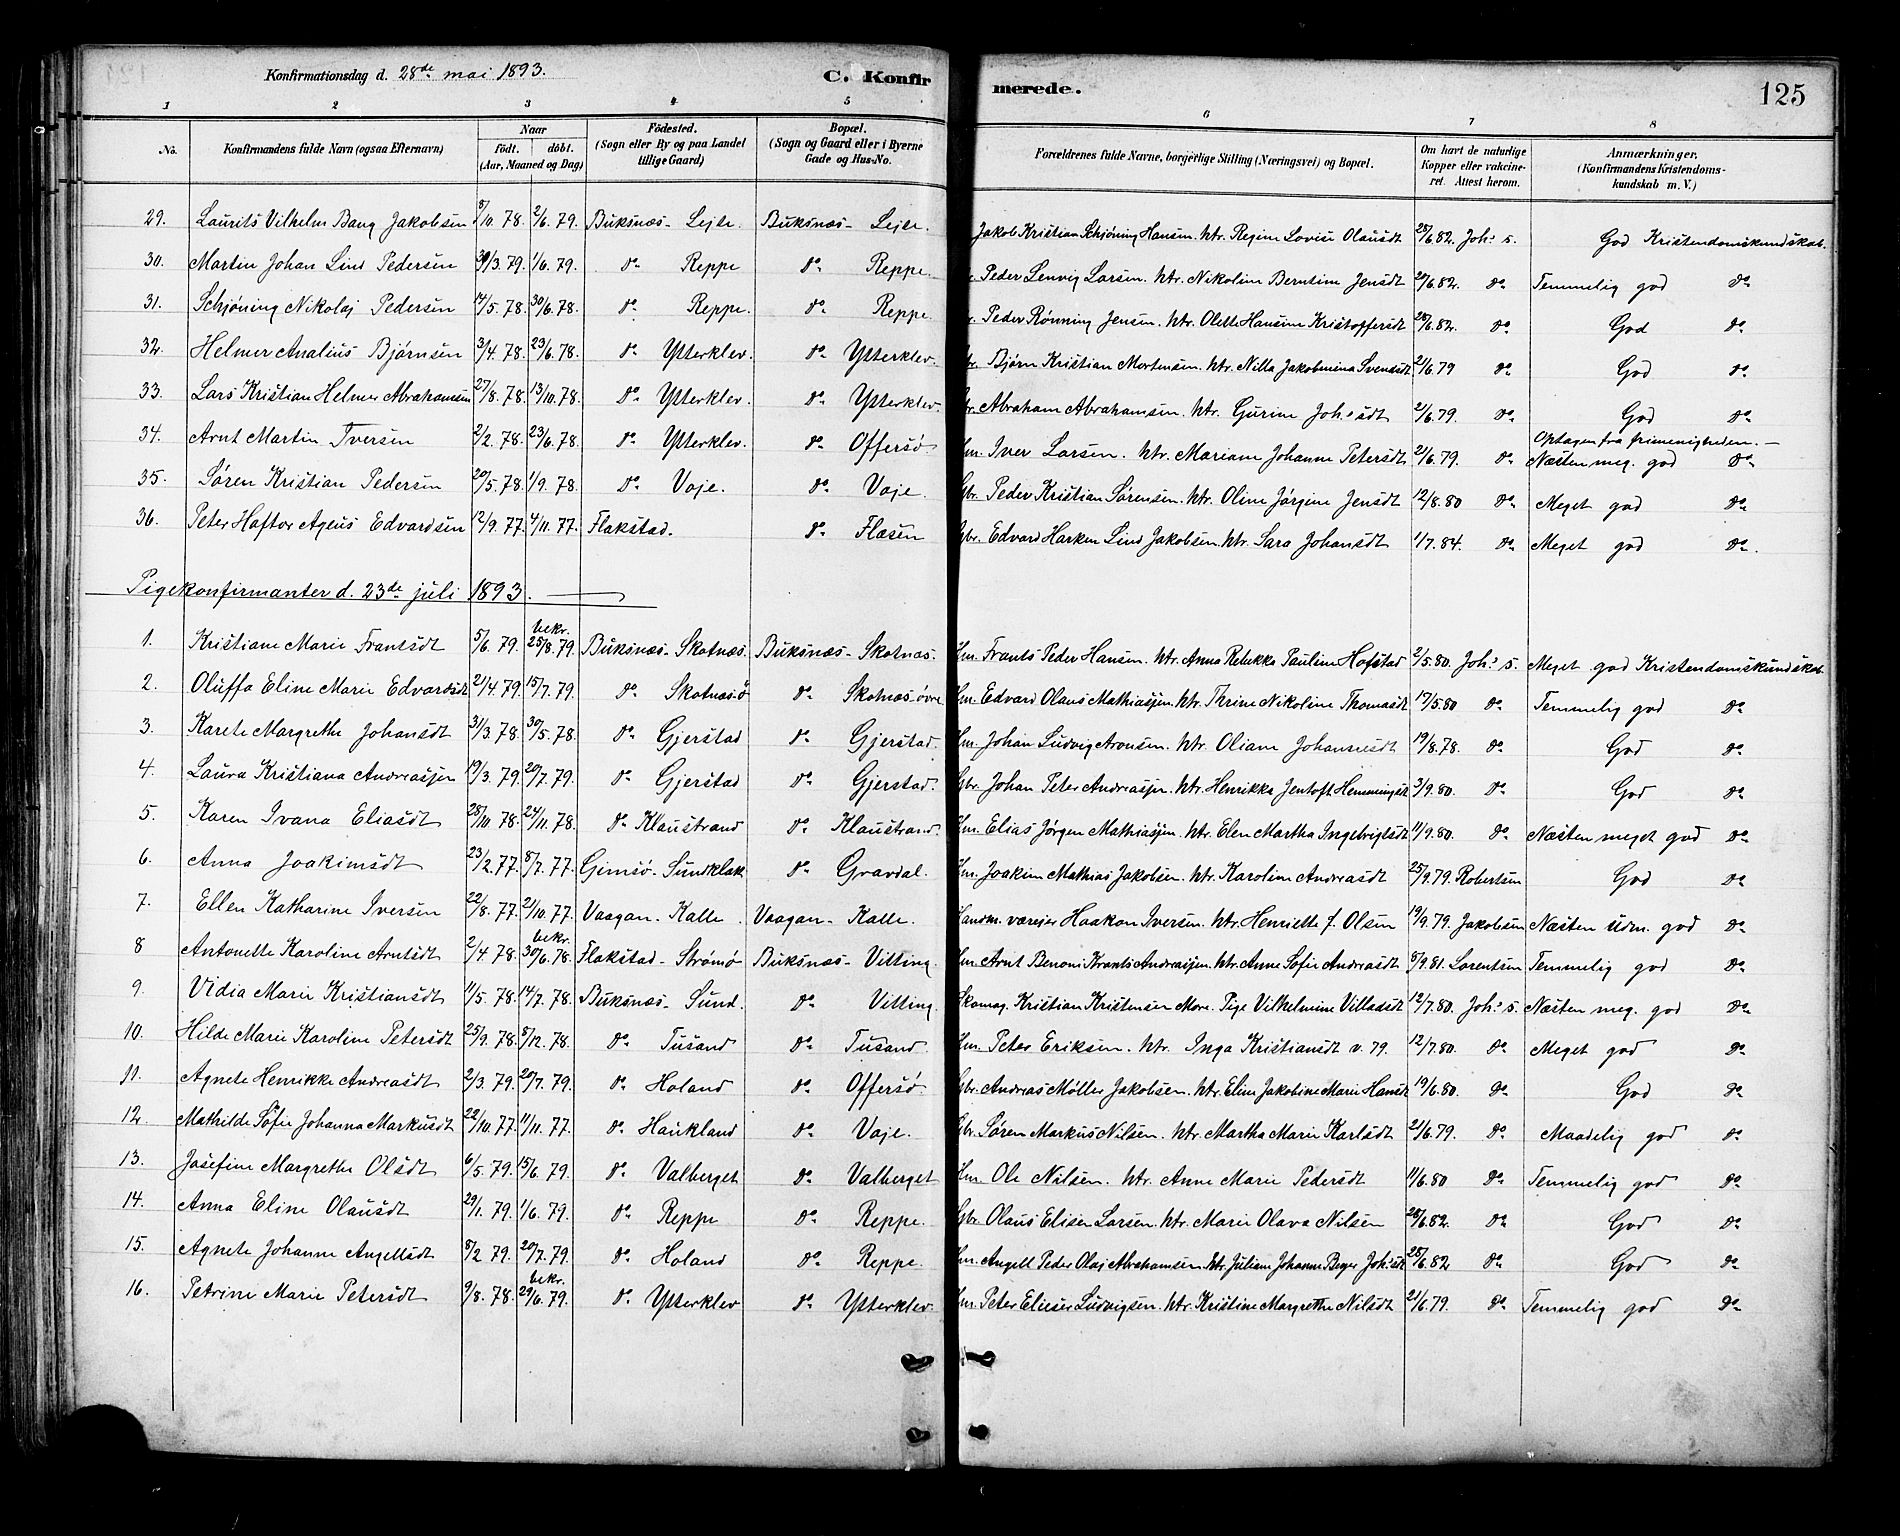 Konfirmationsdag d. 28de mai 1893. C. Konfirmerede. 125
1 2 3 4 5 6 7 8
No. Konfirmandens fulde Navn (ogsaa Efternavn) Naar födt. döbt. (Aar, Maaned og Dag) Födested. (Sogn eller By og paa Landet tillige Gaard) Bopæl. (Sogn og Gaard eller i Byerne Gade og Hus-No. Forældrenes fulde Navne, borgerlige Stilling (Næringsvei) og Bopæl. Om havt de naturlige Kopper eller vakcineret. Attest herom. Anmærkninger. (Konfirmandens Kristendomskundskab m. V.)
29. Laurits Vilhelm Bang Jakobsen 8/10.78. 2/6.79. Buksnæs - Leite. Buksnæs - Leite. Jakob Kristian Schjøning Hansen. htr. Regine Lovise Olausdt 28/6.82. Joh:s. God Kristendomskundskab.
30. Martin Johan Lind Pedersen 30/3.79. 1/6.79. do Reppe do Reppe. Peder Lenvig Larsen. htr. Nikoline Berntine Jensdt 20/6.82. do Temmelig god do
31. Schjøning Nikolaj Pedersen 14/5.78. 30/6.78. do Reppe. do Reppe. Peder Rønning Jensen. htr. Olette Hansine Kristoffersdt 28/6.82. do God do
32. Helmer Analius Bjørnsen 3/4.78. 23/6.78. do Ytterklev. do Ytterklev. Bjørn Kristian Mortensen. htr. Nilla Jakobmina Svendsdt 21/6.79 do God do
33. Lars Kristian Helmer Abrahamsen 27/8.78. 13/10.78. do Ytterklev. do Ytterklev. Abraham Abrahamsen. htr. Gurine Joh:sdt 21/6.79. do God do
Optagen fra frimenigheden. —
34. Arnt Martin Iversen 2/2.78. 23/6.78. do Ytterklev. do Offersö Hm. Iver Larsen. htr. Mariane Johanne Petersdt 21/6.79. do Næsten meg. god do
35. Søren Kristian Pedersen 20/5.78. 1/9.78. do Voje. do Voje. Gbr. Peder Kristian Sørensen. htr. Oline Jørgine Jensdt 12/8.80 do Meget god do
36. Peter Haftor Ageus Edvardsen 12/9.77. 4/11.77. Flakstad. do Flæsen Gbr. Edvard Harken Lind Jakobsen. htr. Sara Johansdt 1/7.84. do Meget god do.
Pigekonfirmanter d. 23de juli 1893.
1. Kristiane Marie Frantsdt 5/6.79. bekr. 25/8.79. Buksnæs - Skotnæs. Buksnæs - Skotnæs. Hm. Frants Peder Hansen. htr. Anna Rebekka Pauline Hofstad 2/5.80. Joh:s. Meget god Kristendomskundskab.
2. Oluffa Eline Marie Edvardsdt 21/4.79. 15/7.79. do Skotnæs.ö do Skotnæs-övre Hm. Edvard Olaus Mathiasjen. htr. Thrine Nikoline Thomasdt 17/5.80 do Temmelig god do
3. Karete Margrethe Johansdt 31/3.78. 30/5.78. do Gjerstad do Gjerstad. Hm. Johan Ludvig Aronsen. htr. Oliane Johannesdt 19/8.78. do God do
4. Laura Kristiana Andreasjen 19/3.79. 20/7.79. do Gjerstad do Gjerstad. Gbr. Johan Peter Andreasjen. htr. Henrikke Jentoft Hemmingsdt 3/9.80. do God do
5. Karen Ivana Eliasdt 28/10.78. 24/11.78. do Klaustrand do Klaustrand. Hm. Elias Jørgen Mathiasjen. htr. Elen Martha Ingebrigtsdt 11/9.80. do Næsten meget god do
6. Anna Joakimsdt 23/2.77. 8/7.77. Gimsö - Sundklak do Gravdal. Hm. Joakim Mathias Jakobsen. htr. Karoline Andreasdt 25/9.79. Robertsen God do
7. Ellen Katharine Iversen 22/8.77. 21/10.77. Vaagan - Kalle. Vaagan - Kalle. Handm. væreier Haakon Iversen. htr. Henriette f. Olsen 19/9.79. Jakobsen Næsten udm. god do
8 Antonette Karoline Arntsdt 2/4.78. bekr. 30/6.78. Flakstad - Strømö Buksnæs - Vitting. Hm. Arnt Benoni Krants Andreasjen. htr. Anne Sofie Andreasdt 8/9.81. Lorentsen Temmelig god do
9. Vidia Marie Kristiansdt 11/5.78. 14/7.78. Buksnæs - Sund. do Vitting. Skomag. Kristian Kristensen Møre. Pige Vilhelmine Villadsdt 12/7.80. Joh:s. Næsten meg. god do
10. Hilde Marie Karoline Petersdt 25/9.78. 8/12.78. do Tusand do Tusand. Hm. Peter Eriksen. htr. Inga Kristiansdt v. 79. 12/7.80. do Meget god do
11. Agnete Henrikke Andreasdt 2/3.79. 20/7.79. do Holand do Offersö. Gbr. Andreas Møller Jakobsen. htr. Eline Jakobine Marie Hansdt 19/6.80. do God do
12. Mathilde Sofie Johanna Markusdt 22/10.77. 11/11.77. do Haukland do Voje. Gbr. Søren Markus Nilsen. htr. Martha Marie Karlsdt 21/6.79. do Maadelig god do
13. Josefine Margrethe Olsdt 6/5.79. 15/6.79. do Valberget do Valberget Hm. Ole Nilsen. htr. Anne Marie Pedersdt 11/6.80 do Temmelig god do
14. Anna Eline Olausdt 29/1.79. 1/6.79. do Reppe do Reppe. Gbr. Olaus Elisen Larsen. htr. Marie Olava Nilsen 28/6.82. do God do
15. Agnete Johanne Angellsdt 8/2 79. 20/7.79. do Holand do Reppe. Hm. Angell Peder Olaj Abrahamsen htr. Juliane Johanne Beyer Joh:sdt 28/6.82 do God do
16. Petrine Marie Petersdt 9/8.78. bekr. 29/6.79. do Ytterklev do Ytterklev. Hm. Peter Elieser Ludvigsen. htr. Kristine Margrethe Nilsdt 21/6.79. do Temmelig god do